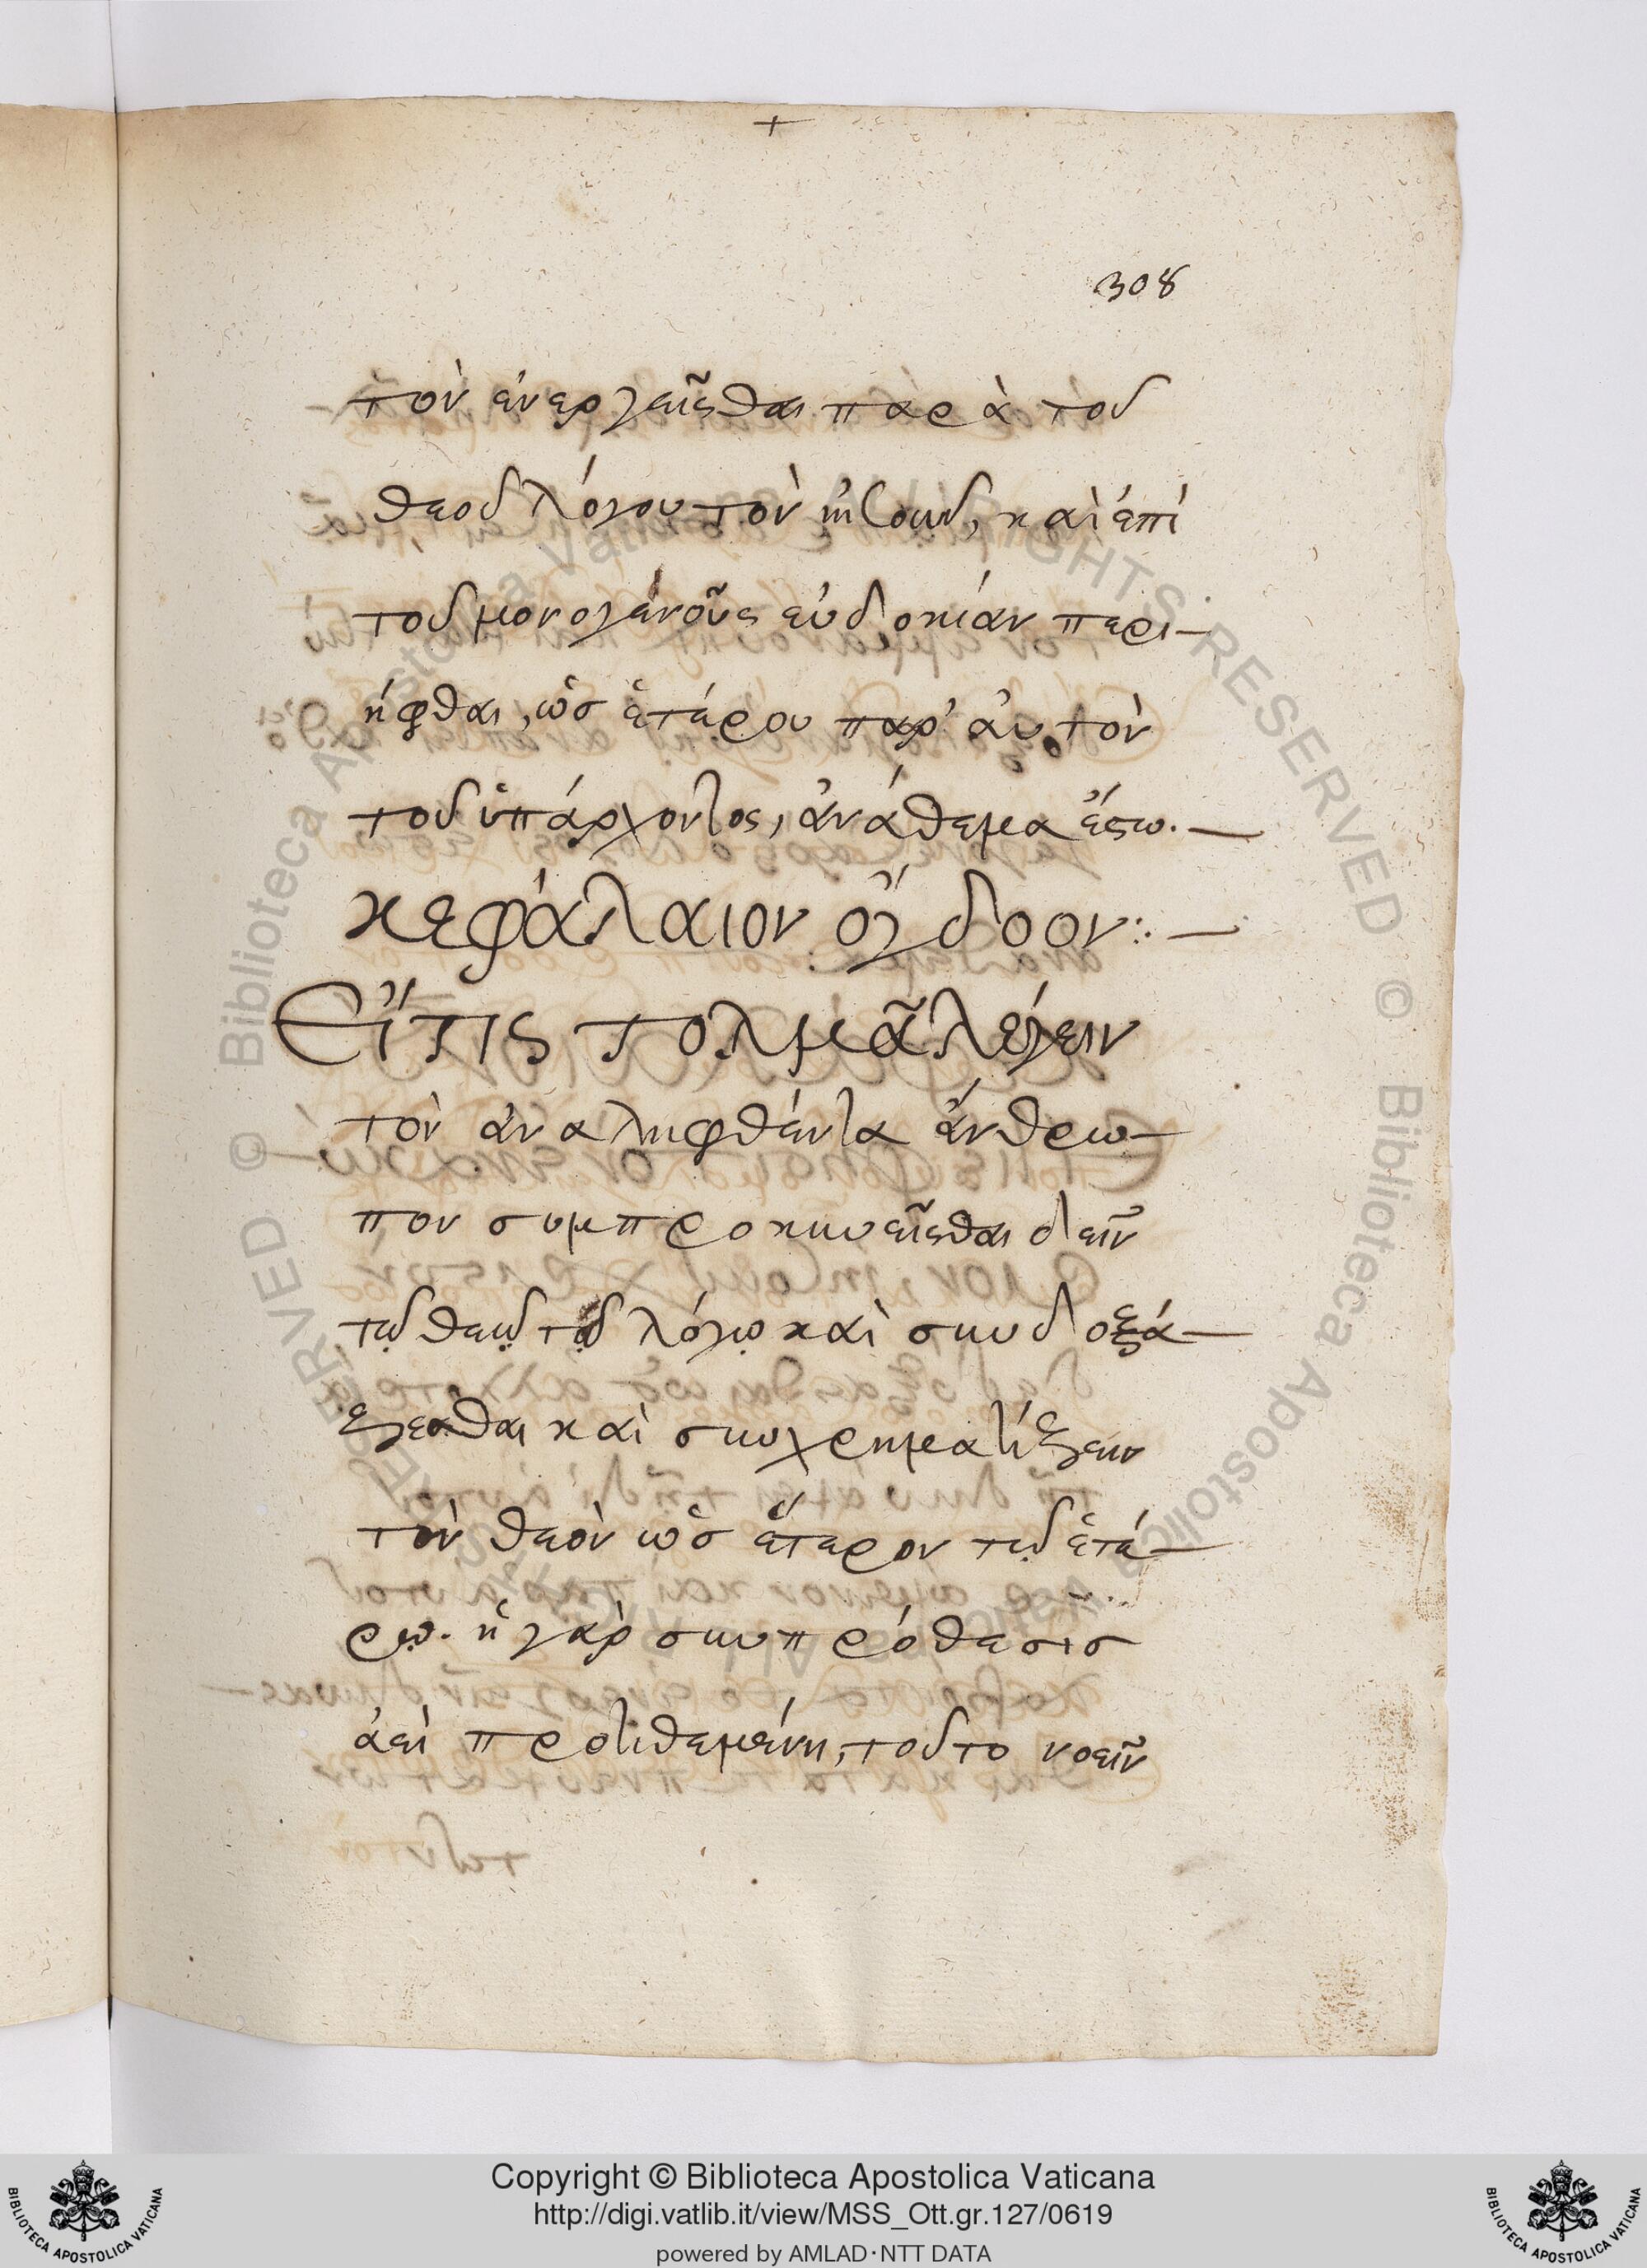 +
308
πον ἐνεργεῖσθαι παρὰ τοῦ
θεοῦ λόγου τὸν ἰησοῦν, καὶ ἐπὶ
τοῦ μονογενοῦς εὐδοκίαν περι—
ήφθαι, ὡς ἑτέρου παρ' αὐτὸν
τοῦ ὑπάρχοντος, ἀνάθεμα ἔστω. —
κεφάλαιον ὄγδοον:. —
Εἴ τις τολμᾶ λέγειν
τὸν ἀναληφθέντα ἄνθρω—
πον συμπροσκυνεῖσθαι δεῖν
τῷ θεῷ τῷ λόγῳ καὶ συνδοξά—
ζεσθαι καὶ συγχρηματίζειν
τὸν θεὸν ὡς ἕτερον τῷ ἑτέ—
ρῳ. ἡ γὰρ συνπρόθεσις
ἀεὶ προτιθεμένη, τοῦτο νοεῖν
Copyright © Biblioteca Apostolica Vaticana
http://digi.vatlib.it/view/MSS_Ott.gr.127/0619
powered by AMLAD·NTT DATA
BIBLIOTECA APOSTOLICA VATICANA
BIBLIOTECA APOSTOLICA VATICANA